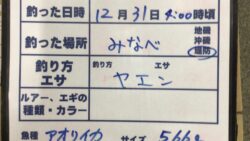 釣った日時 12月31日 4:00時頃
釣った場所 みなべ 地磯 沖磯 堤防
釣り方 エサ 釣り方 ヤエン エサ
ルアー、エギの種類・カラー
魚種 アオリイカ サイズ 566g